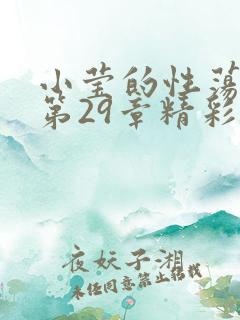 小莹的性荡
第29章精彩
夜妖子湘
未经同意禁止转载